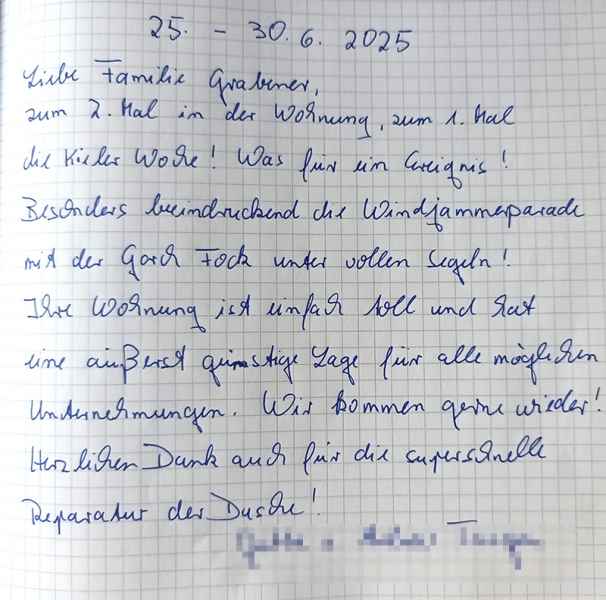 25. - 30. 6. 2025
Liebe Familie Grabener,
zum 2. Mal in der Wohnung, zum 1. Mal
die Kieler Woche! Was für ein Ereignis!
Besonders beeindruckend die Windjammerparade
mit der Gorch Fock unter vollen Segeln!
Ihre Wohnung ist einfach toll und hat
eine äußerst günstige Lage für alle möglichen
Unternehmungen. Wir kommen gerne wieder!
Herzlichen Dank auch für die superschnelle
Reparatur der Dusche!